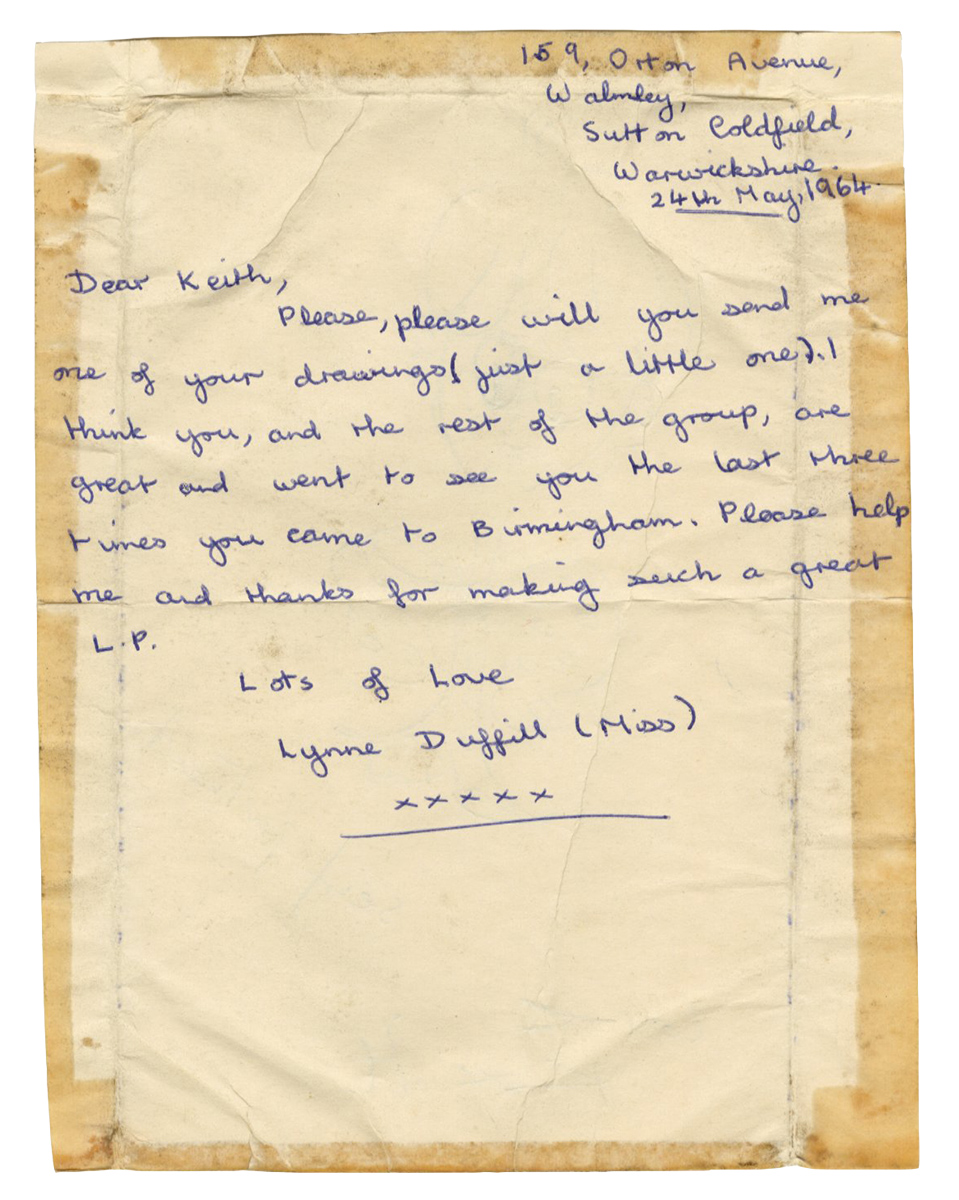 159, Orton Avenue,
Walmley,
Sutton Coldfield,
Warwickshire.
24th May, 1964.
Dear Keith,
Please, please will you send me
one of your drawings (just a little one). I
think you, and the rest of the group, are
great and went to see you the last three
times you came to Birmingham. Please help
me and thanks for making such a great
L.P.
Lots of Love
Lynne Duffill (Miss)
xxxxx